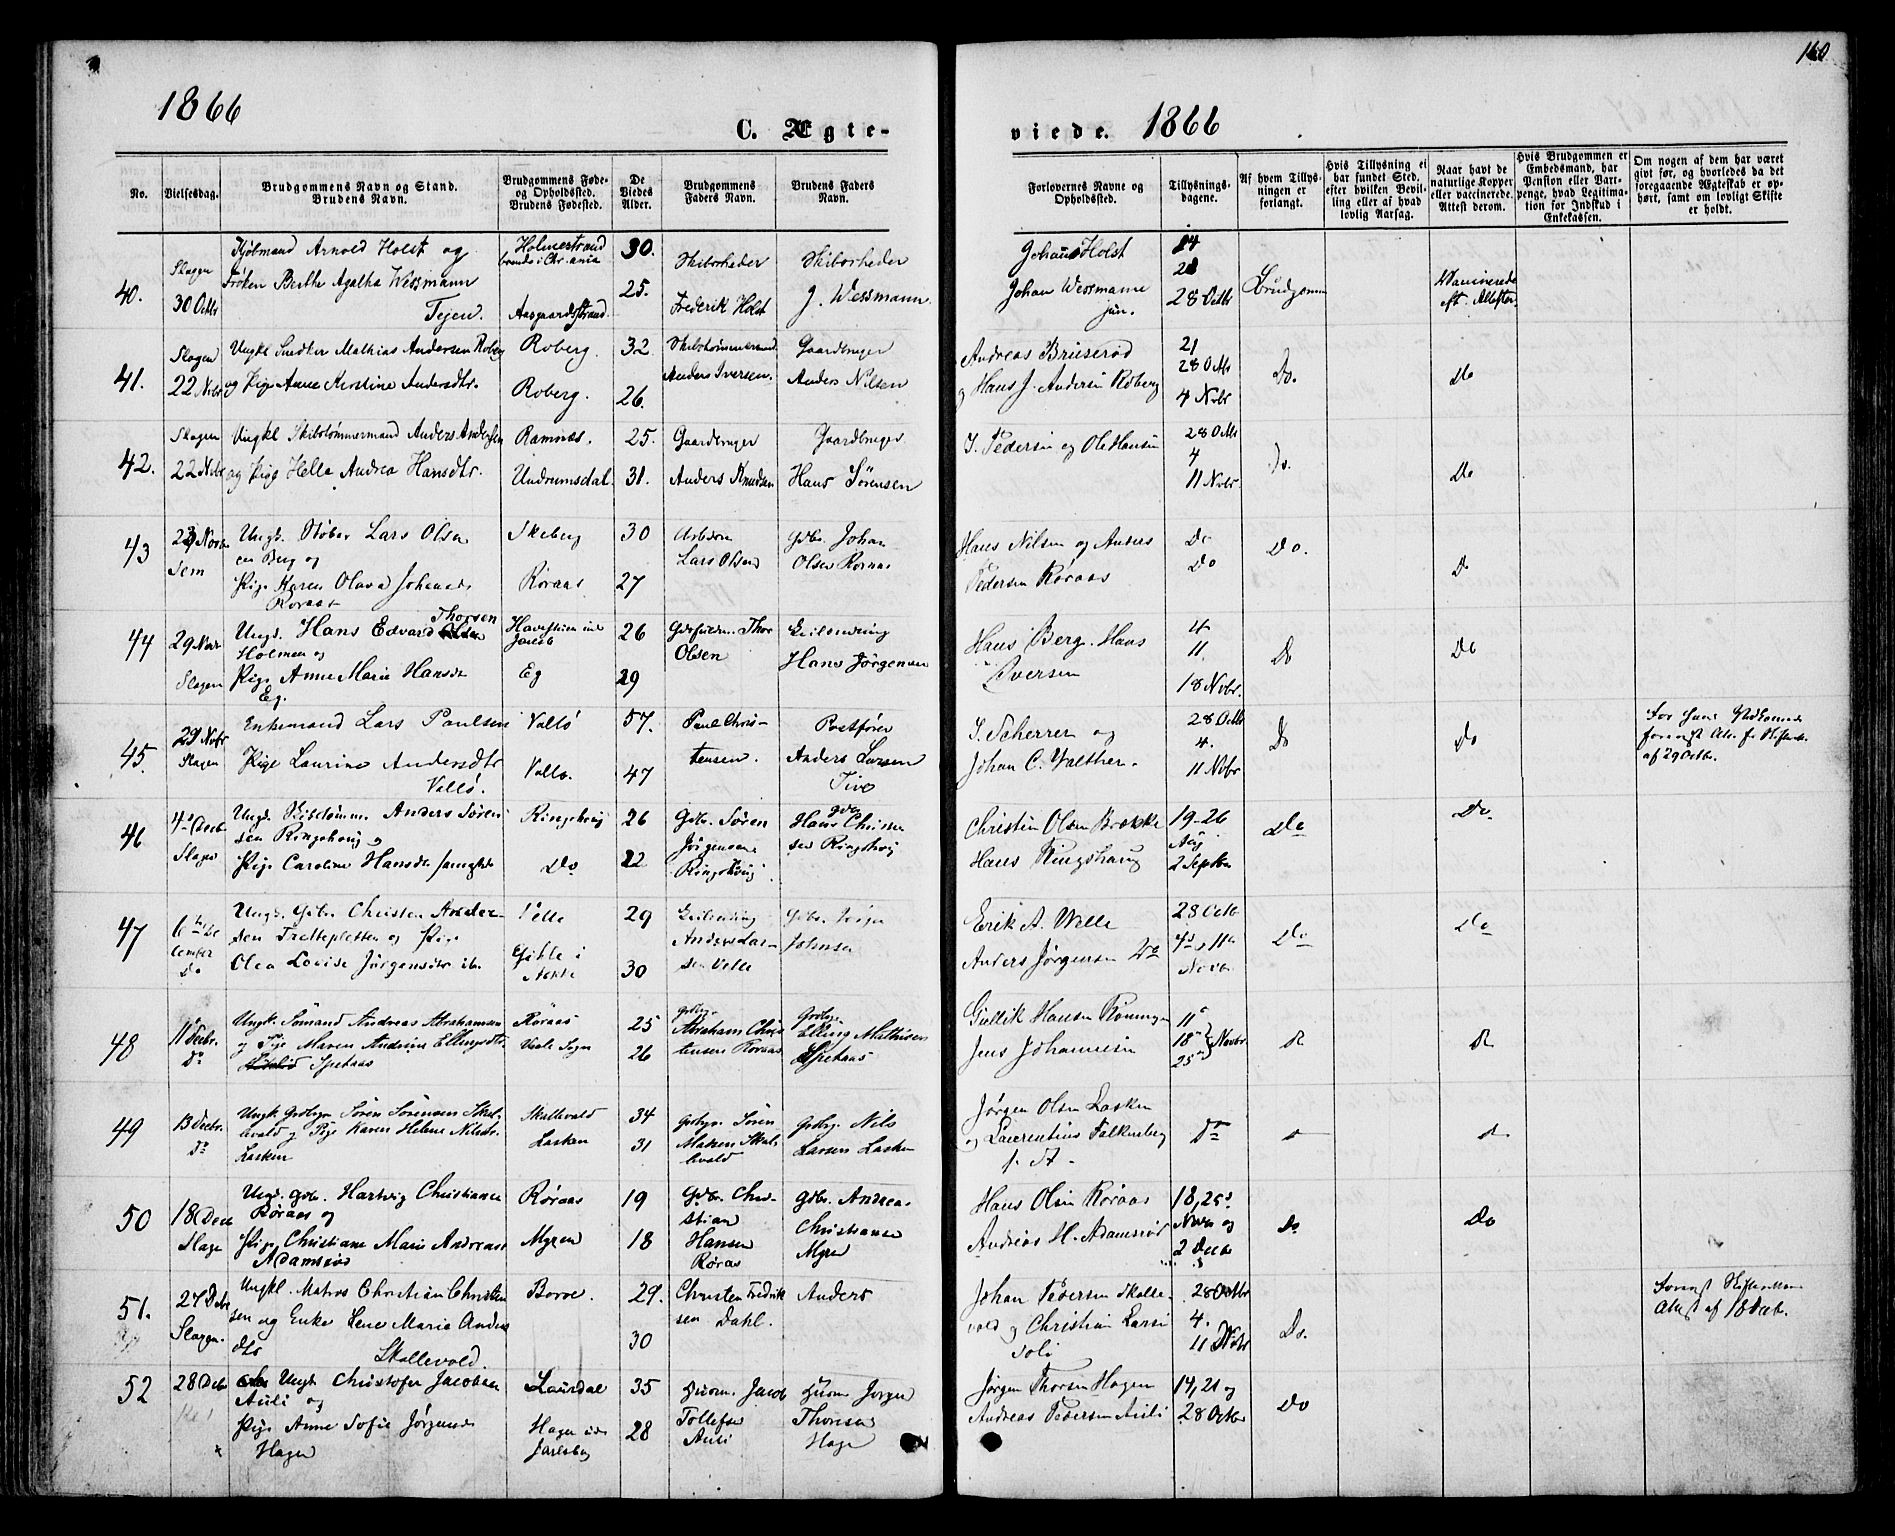 160
1866
C. Ægte-
viede. 1866
No.
Vielsesdag.
Brudgommens Navn og Stand.
Brudens Navn.
Brudgommens Føde-
og Opholdssted.
Brudens Fødested.
De
Viedes
Alder.
Brudgommens
Faders Navn.
Brudens Faders
Navn.
Forlovernes Navne og
Opholdssted.
Tillysnings-
dagene.
Af hvem Tillys-
ningen er
forlangt.
Hvis Tillysning ei
har fundet Sted,
efter hvilken Bevil-
ling eller af hvad
lovlig Aarsag.
Naar havt de
naturlige Kopper
eller vaccinerede.
Attest derom.
Hvis Brudgommen er
Embedsmand, har
Pension eller Vart-
penge, hvad Legitima-
tion for Indskud i
Enkekassen.
Om nogen af dem har været
gift før, og hvorledes da det
foregaaende Ægteskab er op-
hørt, samt om lovligt Skifte
er holdt.
40.
Slagen
30 Octbr
Kjøbmand Arnold Holst og
Frøken Berthe Agathe Wessmann
Tejen.
Holmestrand
Aasgaardsstrand.
30.
25.
Skibsrheder
Frederik Holst
Skibsrheder
J. Wessmann.
Johan Holst
Johan Wessmann
jun.
14
21
28 Octbr
Brudgommen
Vaccinerede
eft. Attester
41.
Slagen
22 Novbr
Ungkl Snedker Mathias Andersen Roberg
og Pige Anne Kirstine Andersdtr.
Roberg.
Roberg.
32.
26.
Skibstømmermand
Anders Iversen.
Gaardbruger
Anders Nilsen
Andreas Bruserød
og Hans J. Andersen Roberg
21
28 Octbr
4 Novbr
Do.
Do
42.
Slagen
22 Novbr
Ungkl Skibstømmermand Anders Andersen
og Pige Helle Andrea Hansdtr.
Ramnæs.
Undrumsdal.
25.
31.
Gaardbruger
Anders Knudsen
Gaardbruger
Hans Sørensen
I. Pedersen og Ole Hansen
28 Octbr
4
11 Novbr.
Do.
Do
43
23 Novbr
Sem
Ungk. Støber Lars Olsen
Berg og
Pige Karen Olava Johans
Roraas
Skeberg
Røraas
30
27
Lars Olsen
Gdbr. Johan
Olsen Roraas
Hans Nilsen og Anders
Pedersen Røraas
Do
Do
Do.
Do
44
29 Novbr
Slagen
Ungk. Hans Edvard Thorsen
Holmen og
Pige Anne Marie Hansdtr
Eg.
Eg
26
29
Thor
Olsen
Hans Jørgensen
Hans Berg. Hans
Iversen
4
11.
18 Novbr.
Do
Do
45.
29 Novbr
Slagen
Enkemand Lars Paulsen
Pige Laurine Andersdtr
Vallø.
Vallø
Vallø.
57.
47
Paul Chris-
tensen.
Postfører
Anders Larsen
I. Scherrer og
Johan C. Walther.
28 Octbr
4.
11 Novbr
Do
Do
af 29 Octbr.
46
4 Decbr
Slagen
Ungk. Skibstømm. Anders Søren
sen Ringshoug og
Pige Caroline Hansdtr
Ringshoug
Do
26
22
Gdbr. Søren
Jørgensen
Ringshoug
Gdbr
Hans Chrisen
sen Ringshoug
Christen Olsen Brekke
Hans Ringshaug
19-26
Aug
2 Septbr
Do
Do.
47
6 De
cember
Do
Ungk. Gdbr. Christen Ander-
sen Trættepletten og Pige
Olea Lovise Jørgensdtr
Velle
29
30
Anders Lar-
sen Velle
Gdbr. Jørgen
Johnsen
Erik A. Welle
Anders Jørgensen Do
28 Octb
4de, 11te
Novbr.
Do
Do
48
11 Decbr.
Do
Ungk. Sømand Andreas Abrahamsen
og Pige Maren Andrine Ellingsdtr.
Spetaas
Røraas
Vaale Sogn
25
26
Gdbgr.
Abraham Chris
tensen Roraas
Gdbgr.
Elling Mathisen
Spetaas
Gullik Hansen Rønningen
Jens Johannesen
11
18 Novbr
25
Do
Do
49
13 Decbr.
Do
Ungk. Gdbgr. Søren Sørensen Skal-
levald og Pige Karen Helene Nilsdtr.
Lasken
Skallevald
Lasken
34
31
Gdbgr. Søren
Matsen Skal-
levald
Gdbgr. Nils
Larsen Lasken
Jørgen Olsen Lasken
og Laurentius Falkenberg
Do
50
18 Decb
Slagen
Ungk. Gdbr. Hartvig Christiansen
Røraas og
Pige Christiane Marie Andreas
Adamsrød
Røraas
Myren
19
18
Gdbr. Chri-
stian
Hansen
Røraas
Gdbr. Andreas
Christiansen
Myren
Hans Olsen Røraas
Andreas H. Adamsrød
18, 25
Novbr og
2 Decbr
Do
Do
51.
27 Decbr
Slagen.
Ungkl. Matros Christian Christen
sen og Enke Lene Marie Anders
dtr
Skallevold.
Borre.
29.
30
Christen Fredrik
sen Dahl.
Anders
Johan Pedersen Skalle-
vold og Christian Larsen
Solli
28 Octbr
4.
11 Novbr
Do.
Attest af 18 Decbr.
52
28 Decbr
Ungk. Christofer Jacobsen
Auli og
Pige Anne Sofie Jørgensdtr
Hagen
Laurdal
Hagen
Jarlsberg
35
28
Huusm. Jacob
Tollefsen
Auli
Huusm Jørgen
Thorsen
Hagen
Jørgen Thorsen Hagen
Andreas Pedersen Auli
14, 21 og
28 Octbr
Do